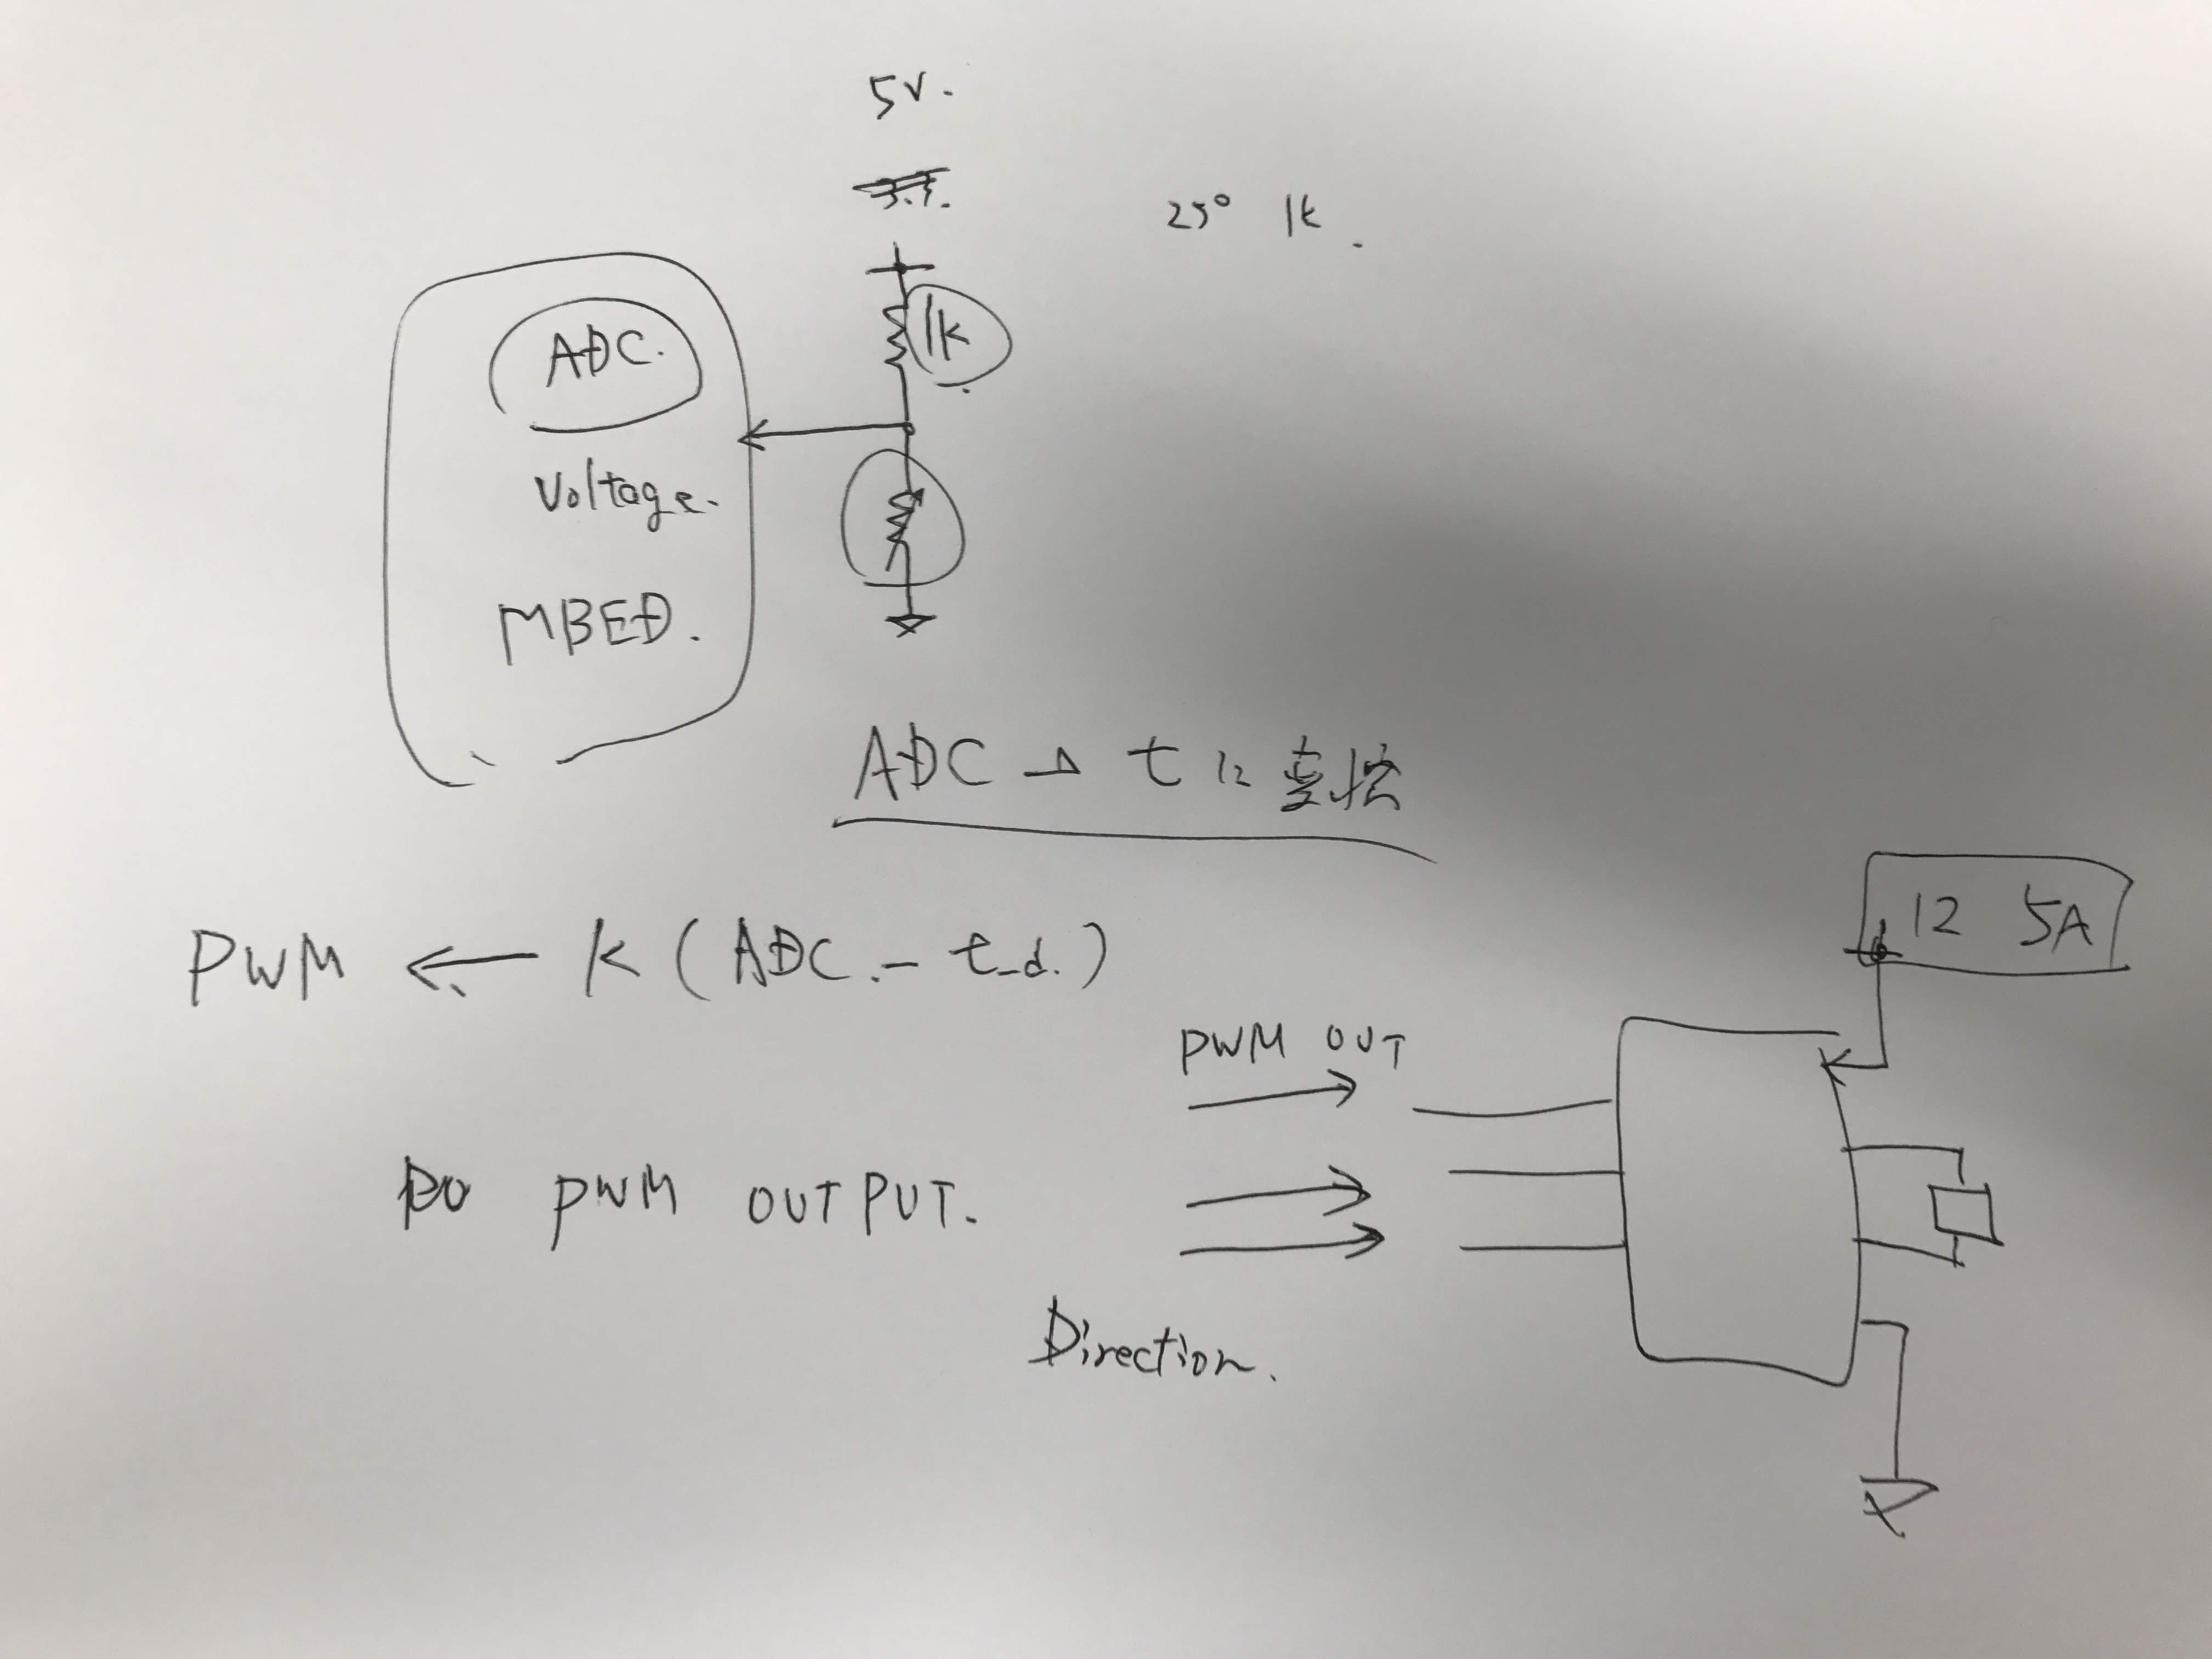 5V.
25° 1k.
1k
ADC.
Voltage.
MBED.
ADC → tに変換
PWM ← K (ADC. - t_d.)
12 5A
PWM OUT
PWM OUTPUT.
Direction.